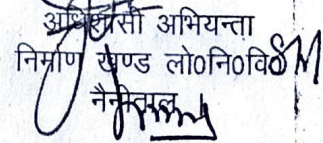 अधिशासी अभियन्ता
निर्माण खण्ड लो०नि०वि०
नैनीताल